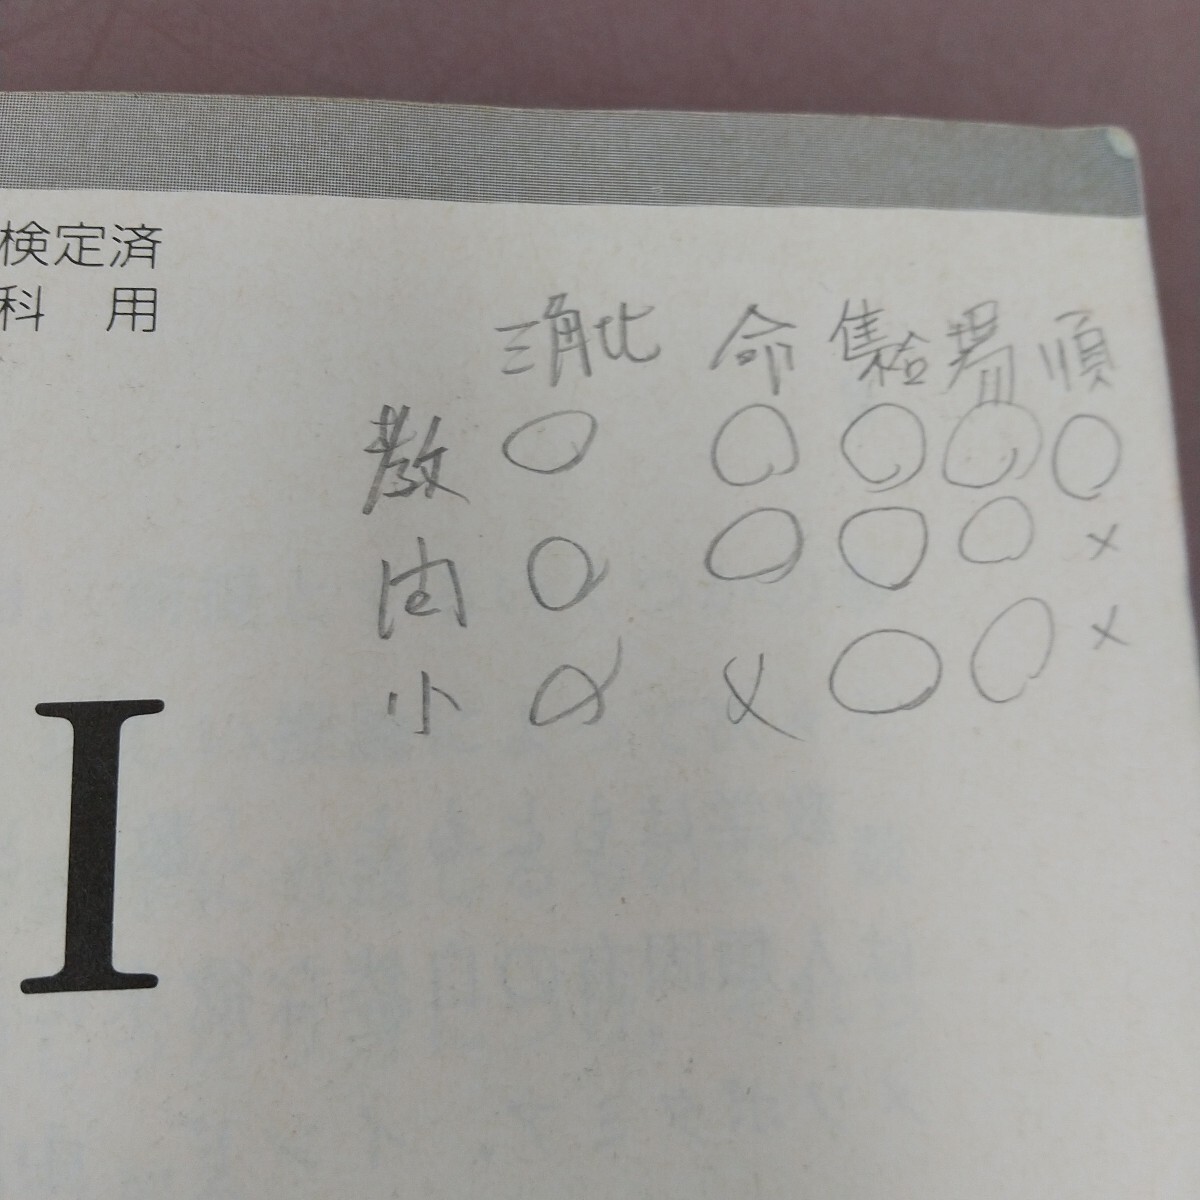 検定済
科 用
三角比 命 集合 場 順
教 ○ ○ ○ ○ ○
○ ○ ○ ○ ×
小 ○ × ○ ○ ×
I